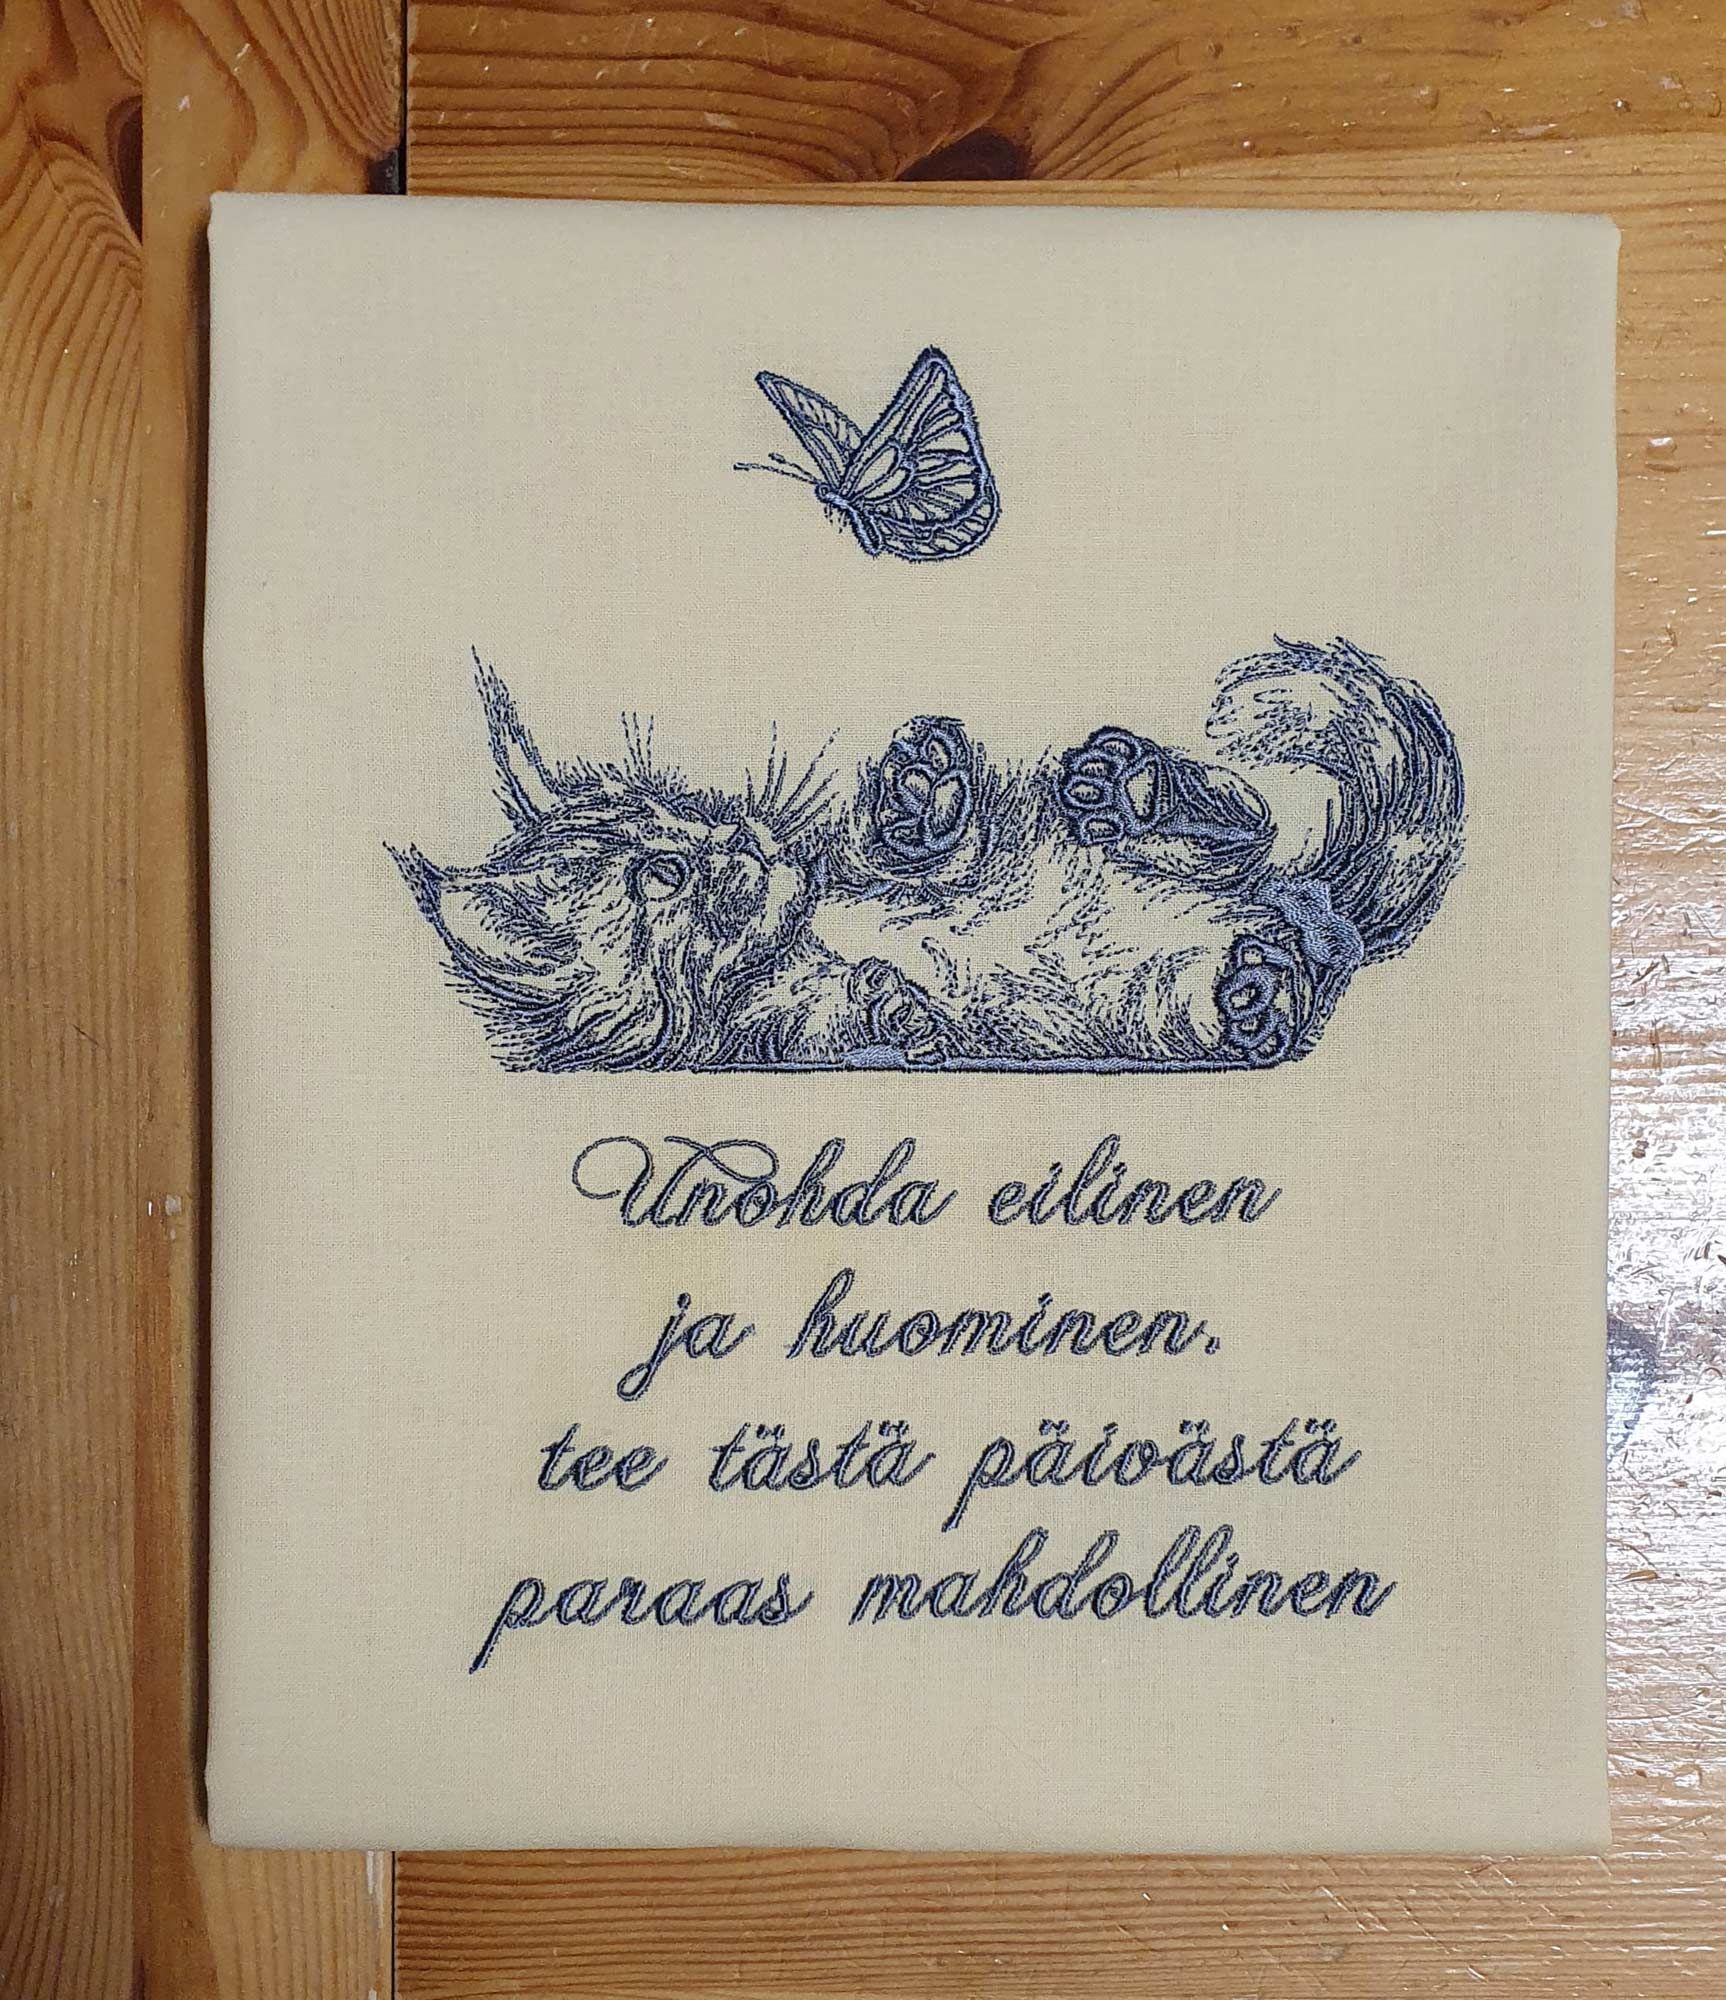 Unohda eilinen
ja huominen.
tee tästä päivästä
paraas mahdollinen